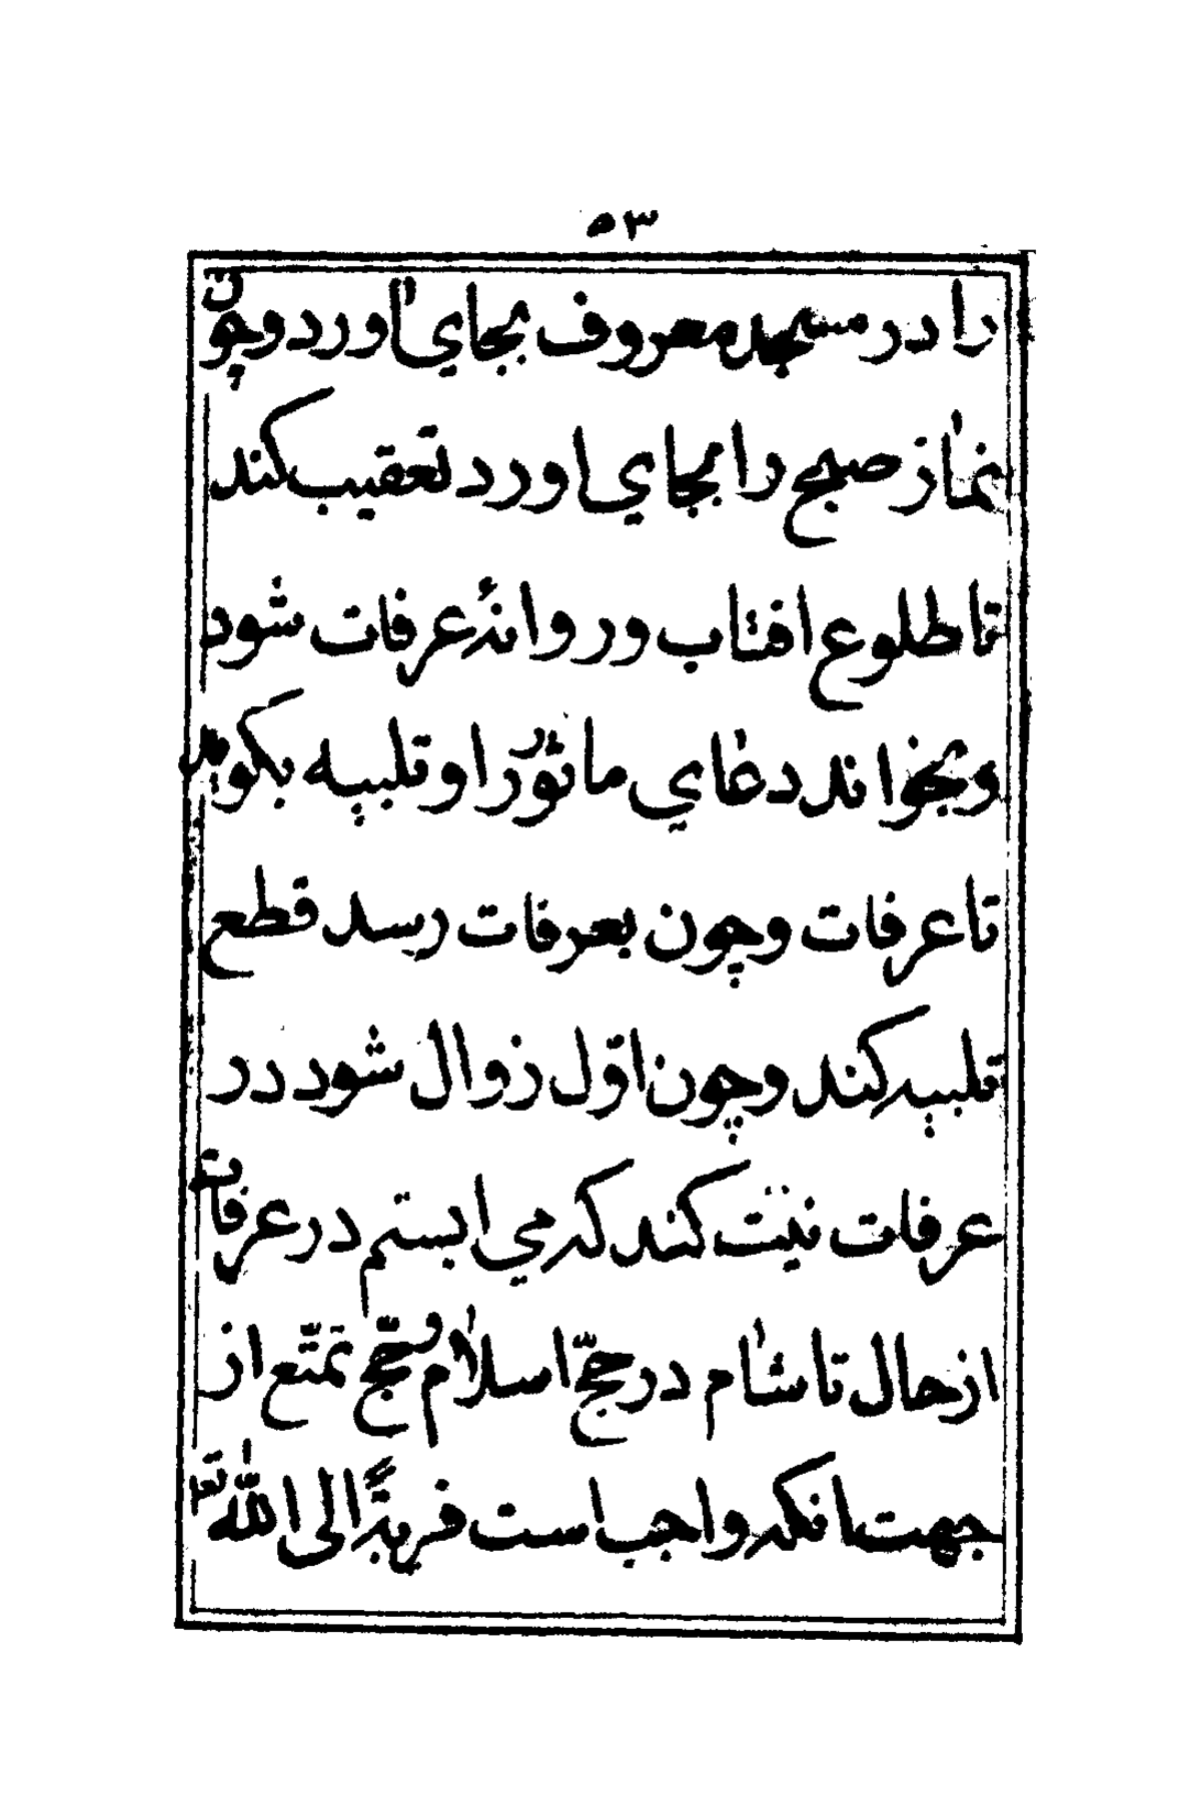 ٥٣
را در مسجد معروف بجاي اورد و چون
نماز صبح را بجاي اورد تعقیب کند
تا طلوع افتاب و روانهٔ عرفات شود
و بخواند دعاي ماثور را و تلبیه بکوید
تا عرفات و چون بعرفات رسد قطع
تلبیه کند و چون اوّل زوال شود در
عرفات نیّت کند که مي ایستم در عرفات
از حال تا شام در حجّ اسلام و حجّ تمتّع از
جهت انکه واجب است قربةً الی الله تع